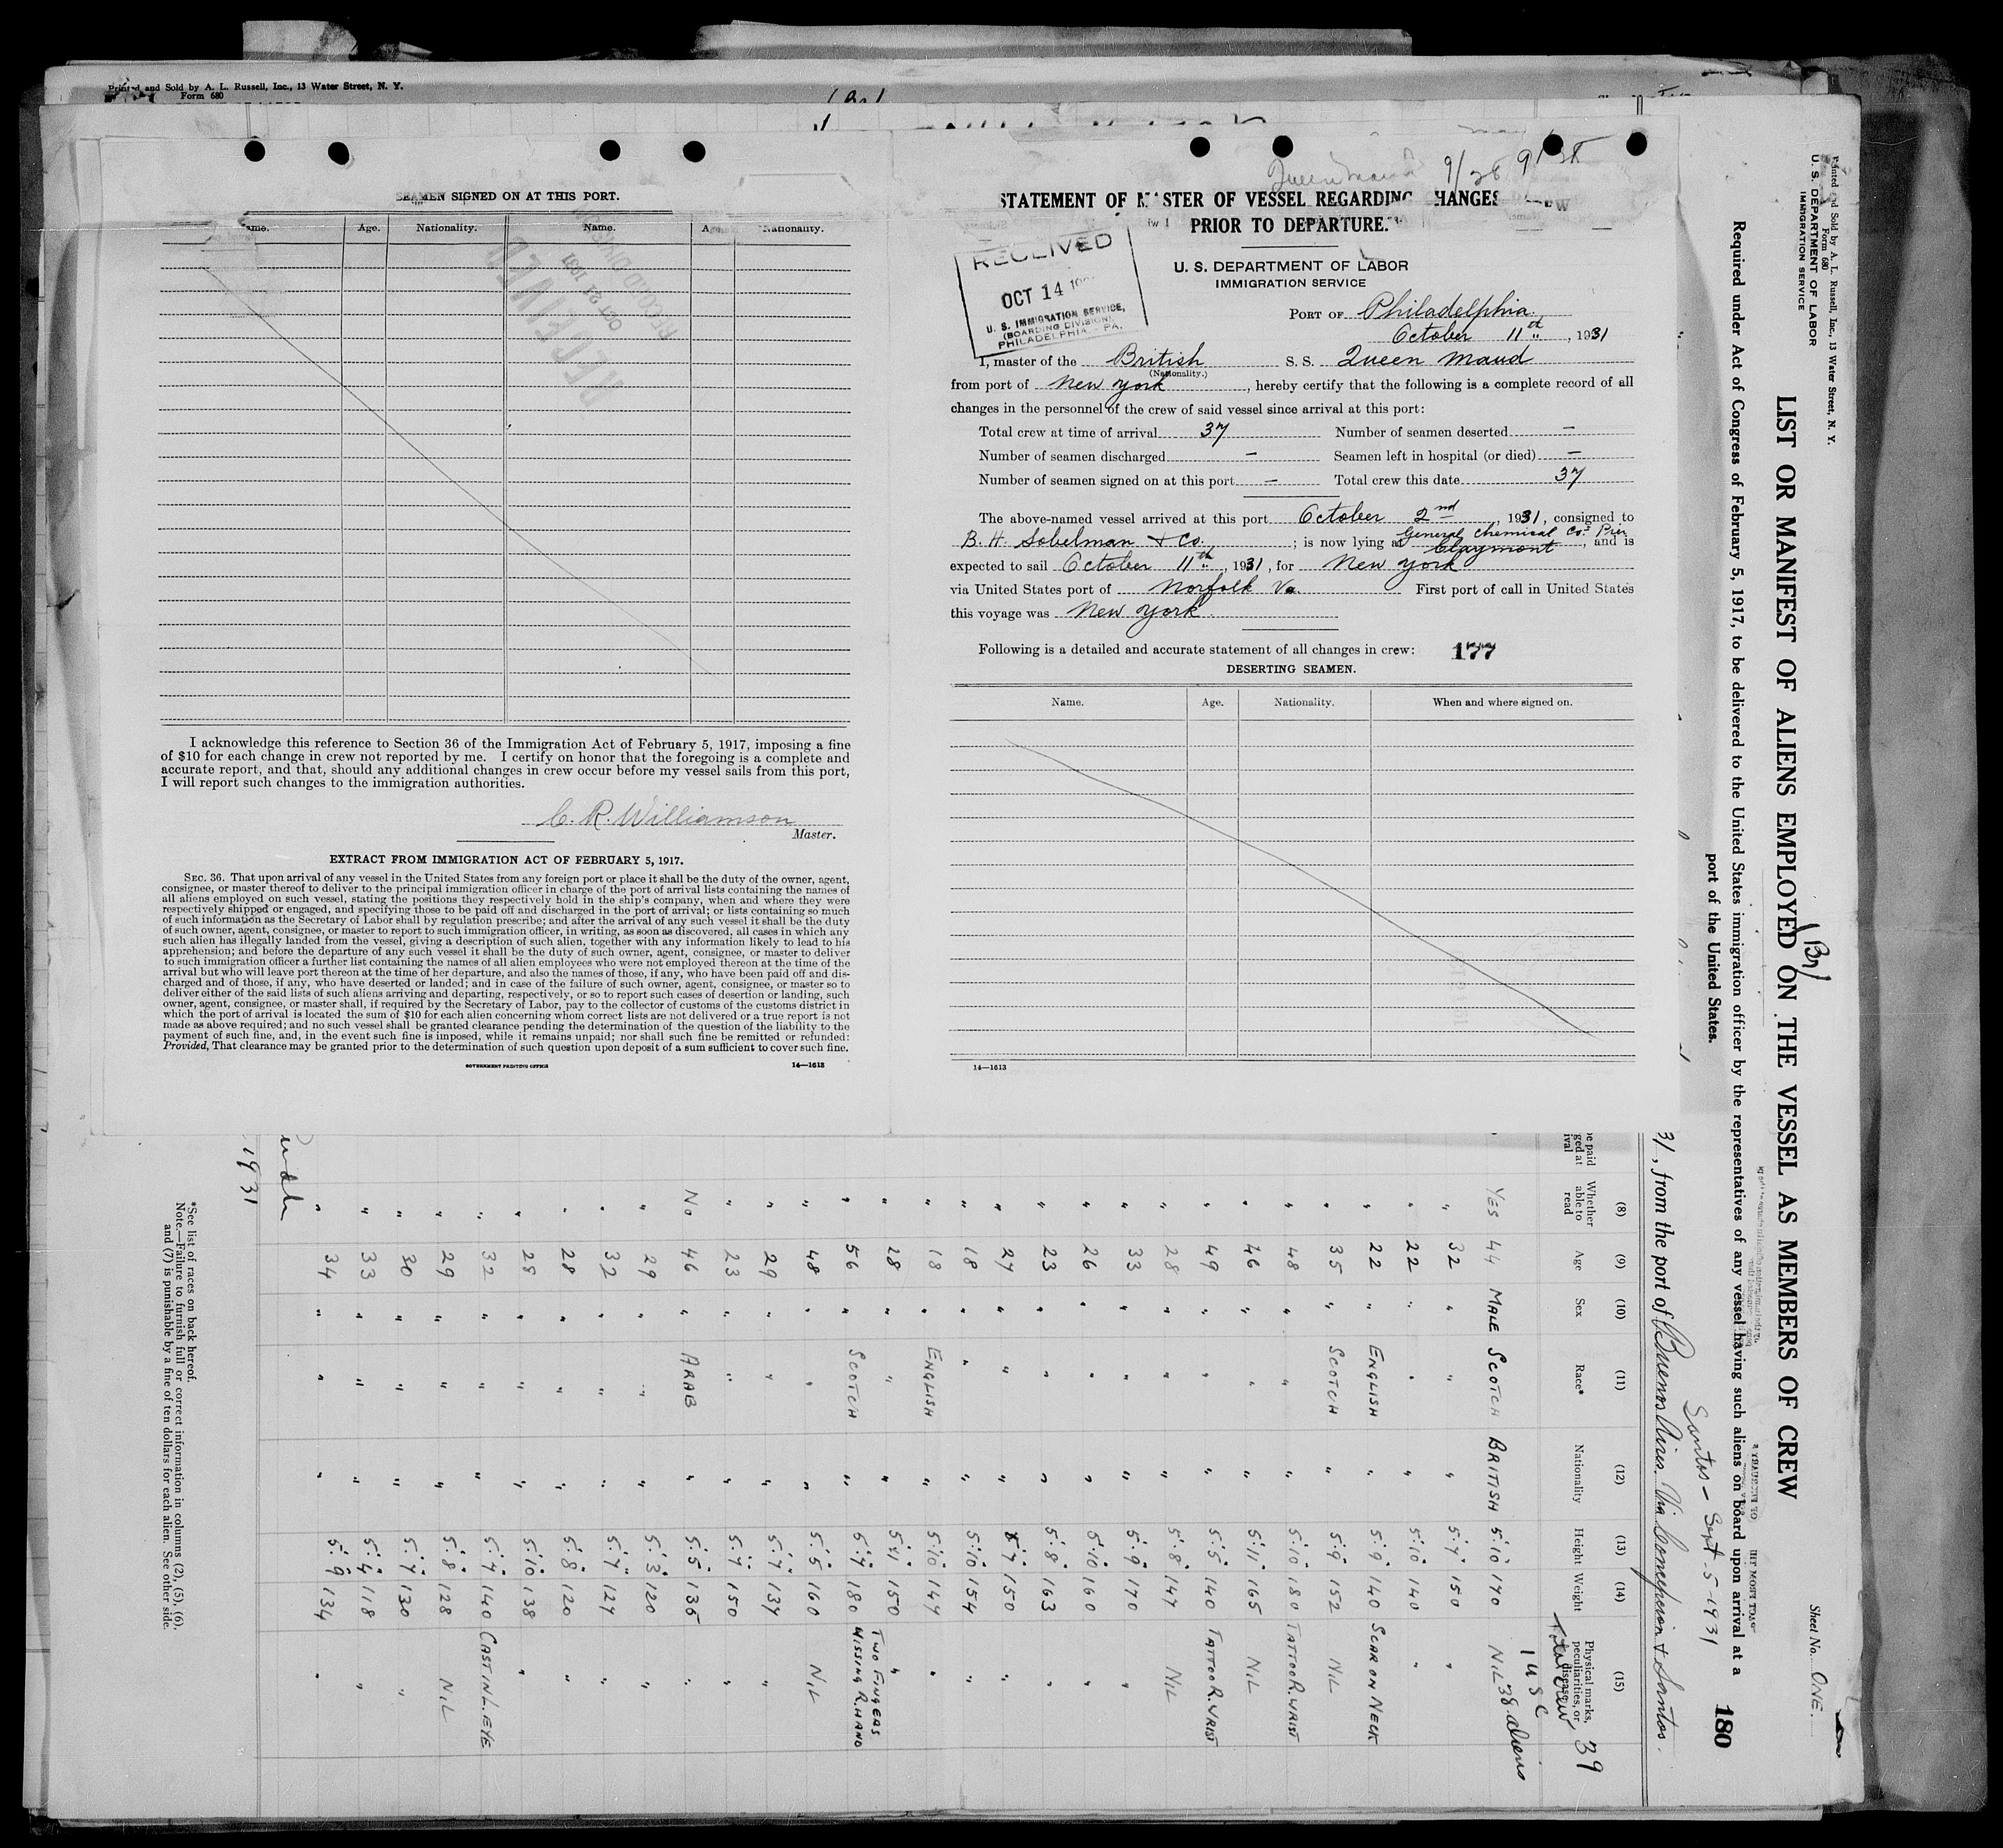 Printed and Sold by A. L. Russell, Inc., 13 Water Street, N. Y.
Form 680
SEAMEN SIGNED ON AT THIS PORT.
Name. Age. Nationality. Name. Age. Nationality.
RECEIVED
OCT 21 1931
RECORD DIV
I acknowledge this reference to Section 36 of the Immigration Act of February 5, 1917, imposing a fine
of $10 for each change in crew not reported by me. I certify on honor that the foregoing is a complete and
accurate report, and that, should any additional changes in crew occur before my vessel sails from this port,
I will report such changes to the immigration authorities.
C. R. Williamson
Master.
EXTRACT FROM IMMIGRATION ACT OF FEBRUARY 5, 1917.
SEC. 36. That upon arrival of any vessel in the United States from any foreign port or place it shall be the duty of the owner, agent,
consignee, or master thereof to deliver to the principal immigration officer in charge of the port of arrival lists containing the names of
all aliens employed on such vessel, stating the positions they respectively hold in the ship's company, when and where they were
respectively shipped or engaged, and specifying those to be paid off and discharged in the port of arrival; or lists containing so much
of such information as the Secretary of Labor shall by regulation prescribe; and after the arrival of any such vessel it shall be the duty
of such owner, agent, consignee, or master to report to such immigration officer, in writing, as soon as discovered, all cases in which any
such alien has illegally landed from the vessel, giving a description of such alien, together with any information likely to lead to his
apprehension; and before the departure of any such vessel it shall be the duty of such owner, agent, consignee, or master to deliver
to such immigration officer a further list containing the names of all alien employees who were not employed thereon at the time of the
arrival but who will leave port thereon at the time of her departure, and also the names of those, if any, who have been paid off and dis-
charged and of those, if any, who have deserted or landed; and in case of the failure of such owner, agent, consignee, or master so to
deliver either of the said lists of such aliens arriving and departing, respectively, or so to report such cases of desertion or landing, such
owner, agent, consignee, or master shall, if required by the Secretary of Labor, pay to the collector of customs of the customs district in
which the port of arrival is located the sum of $10 for each alien concerning whom correct lists are not delivered or a true report is not
made as above required; and no such vessel shall be granted clearance pending the determination of the question of the liability to the
payment of such fine, and, in the event such fine is imposed, while it remains unpaid; nor shall such fine be remitted or refunded:
Provided, That clearance may be granted prior to the determination of such question upon deposit of a sum sufficient to cover such fine.
GOVERNMENT PRINTING OFFICE 14—1613
Queen Maud 9/26
STATEMENT OF MASTER OF VESSEL REGARDING CHANGES
PRIOR TO DEPARTURE.
U. S. DEPARTMENT OF LABOR
IMMIGRATION SERVICE
RECEIVED
OCT 14
U. S. IMMIGRATION SERVICE,
(BOARDING DIVISION),
PHILADELPHIA - PA.
PORT OF Philadelphia
October 11th, 1931
I, master of the British S. S. Queen Maud
(Nationality.)
from port of New York, hereby certify that the following is a complete record of all
changes in the personnel of the crew of said vessel since arrival at this port:
Total crew at time of arrival 37 Number of seamen deserted —
Number of seamen discharged — Seamen left in hospital (or died) —
Number of seamen signed on at this port — Total crew this date 37
The above-named vessel arrived at this port October 2nd, 1931, consigned to
General Chemical Co.'s Pier
B. H. Sobelman & Co.; is now lying at Claymont, and is
expected to sail October 11th, 1931, for New York
via United States port of Norfolk Va. First port of call in United States
this voyage was New York.
Following is a detailed and accurate statement of all changes in crew: 177
DESERTING SEAMEN.
Name. Age. Nationality. When and where signed on.
14—1613
Printed and Sold by A. L. Russell, Inc., 13 Water Street, N. Y.
Form 680
U. S. DEPARTMENT OF LABOR
IMMIGRATION SERVICE
Sheet No. ONE
(Br)
LIST OR MANIFEST OF ALIENS EMPLOYED ON THE VESSEL AS MEMBERS OF CREW
Required under Act of Congress of February 5, 1917, to be delivered to the United States immigration officer by the representatives of any vessel having such aliens on board upon arrival at a
port of the United States.
180
Santos – Sept. 5-1931
31, from the port of Buenos Aires. Via Concepcion & Santos.
(8) (9) (10) (11) (12) (13) (14) (15)
Whether able to read Age Sex Race* Nationality Height Weight Physical marks, peculiarities, or disease
Total crew 39
1 USC
38 aliens
YES 44 MALE SCOTCH BRITISH 5'10" 170 NIL
" 32 " " " 5'7" 150 "
" 22 " " " 5'10" 140 "
" 22 " ENGLISH " 5'9" 140 SCAR ON NECK
" 35 " SCOTCH " 5'9" 152 NIL
" 48 " " " 5'10" 180 TATTOO R. WRIST
" 46 " " " 5'11" 165 NIL
" 49 " " " 5'5" 140 TATTOO R. WRIST
" 28 " " " 5'8" 147 NIL
" 33 " " " 5'9" 170
" 26 " " " 5'10" 160 "
" 23 " " " 5'8" 163 "
" 27 " " " 5'7" 150 "
" 18 " " " 5'10" 154 "
" 18 " ENGLISH " 5'10" 147 "
" 28 " " " 5'11" 150 "
" 56 " SCOTCH " 5'7" 180 TWO FINGERS MISSING R. HAND
" 48 " " " 5'5" 160 NIL
" 29 " " " 5'7" 137 "
" 23 " " " 5'7" 150 "
No 46 " ARAB " 5'5" 135 "
" 29 " " " 5'3" 120 "
" 32 " " " 5'7" 127 "
" 28 " " " 5'8" 120 "
" 28 " " " 5'10" 138 "
" 32 " " " 5'7" 140 CAST IN L. EYE
" 29 " " " 5'8" 128 NIL
" 30 " " " 5'7" 130 "
" 33 " " " 5'4" 118 "
" 34 " " " 5'9" 134 "
1931
*See list of races on back hereof.
Note.—Failure to furnish full or correct information in columns (2), (5), (6),
and (7) is punishable by a fine of ten dollars for each alien. See other side.